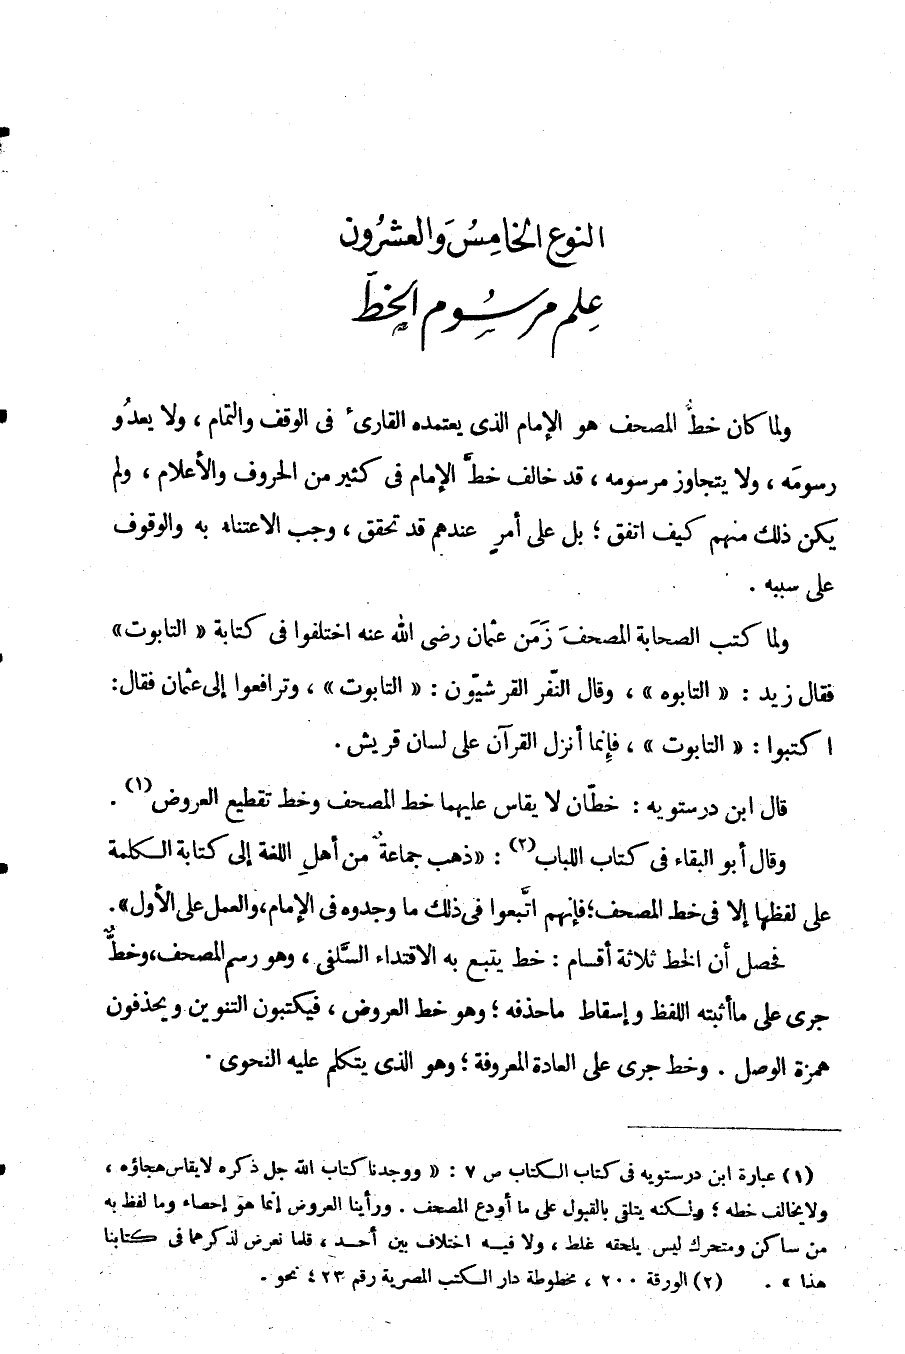 النوع الخامِسُ وَالعشرُون
عِلم مرسُوم الخطّ
ولما كان خطُّ المصحف هو الإمام الذى يعتمده القارئ فى الوقف والتمام ، ولا يعدُو
رسومَه ، ولا يتجاوز مرسومه ، قد خالف خطَّ الإمام فى كثير من الحروف والأعلام ، ولم
يكن ذلك منهم كيف اتفق ؛ بل على أمرٍ عندهم قد تحقق ، وجب الاعتناء به والوقوف
على سببه .
ولما كتب الصحابة المصحفَ زَمَن عثمان رضى الله عنه اختلفوا فى كتابة « التابوت»
فقال زيد : « التابوه » ، وقال النّفر القرشيّون : « التابوت » ، وترافعوا إلى عثمان فقال:
اكتبوا : « التابوت » ، فإِنما أنزل القرآن على لسان قريش .
قال ابن درستويه : خطّان لا يقاس عليهما خط المصحف وخط تقطيع العروض(١) .
وقال أبو البقاء فى كتاب اللباب(٢) : «ذهب جماعةٌ من أهلِ اللغة إلى كتابة الكلمة
على لفظها إلا فى خط المصحف؛ فإنهم اتَّبعوا فى ذلك ما وجدوه فى الإمام، والعمل على الأول».
فحصل أن الخط ثلاثة أقسام : خط يتبع به الاقتداء السَّلفى ، وهو رسم المصحف، وخطٌّ
جرى على ما أثبته اللفظ وإسقاط ماحذفه ؛ وهو خط العروض ، فيكتبون التنوين ويحذفون
همزة الوصل . وخط جرى على العادة المعروفة ؛ وهو الذى يتكلم عليه النحوى .
(١) عبارة ابن درستويه فى كتاب الكتاب ص ٧ : « ووجدنا كتاب الله جل ذكره لايقاس هجاؤه ،
ولا يخالف خطه ؛ ولكنه يتلقى بالقبول على ما أودع المصحف . ورأينا العروض إنما هو إحصاء وما لفظ به
من ساكن ومتحرك ليس يلحقه غلط ، ولا فيه اختلاف بين أحد ، فلما نعرض لذكرهما فى كتابنا
هذا » . (٢) الورقة ٢٠٠ ، مخطوطة دار الكتب المصرية رقم ٤٢٣ نحو .